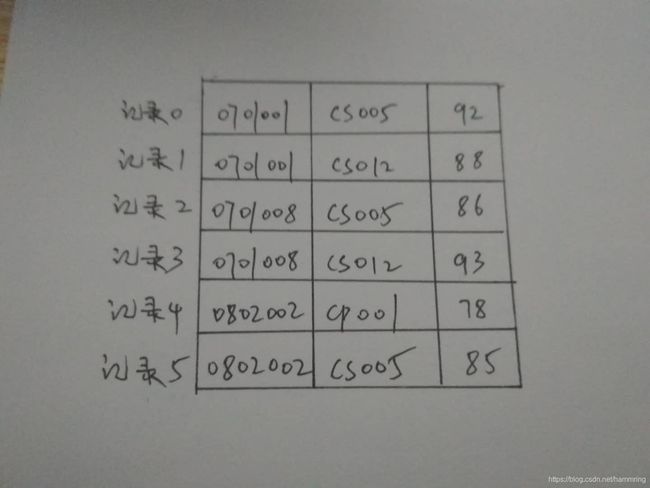 记录0 0701001 CS005 92
记录1 0701001 CS012 88
记录2 0701008 CS005 86
记录3 0701008 CS012 93
记录4 0802002 CP001 78
记录5 0802002 CS005 85
https://blog.csdn.net/hammring